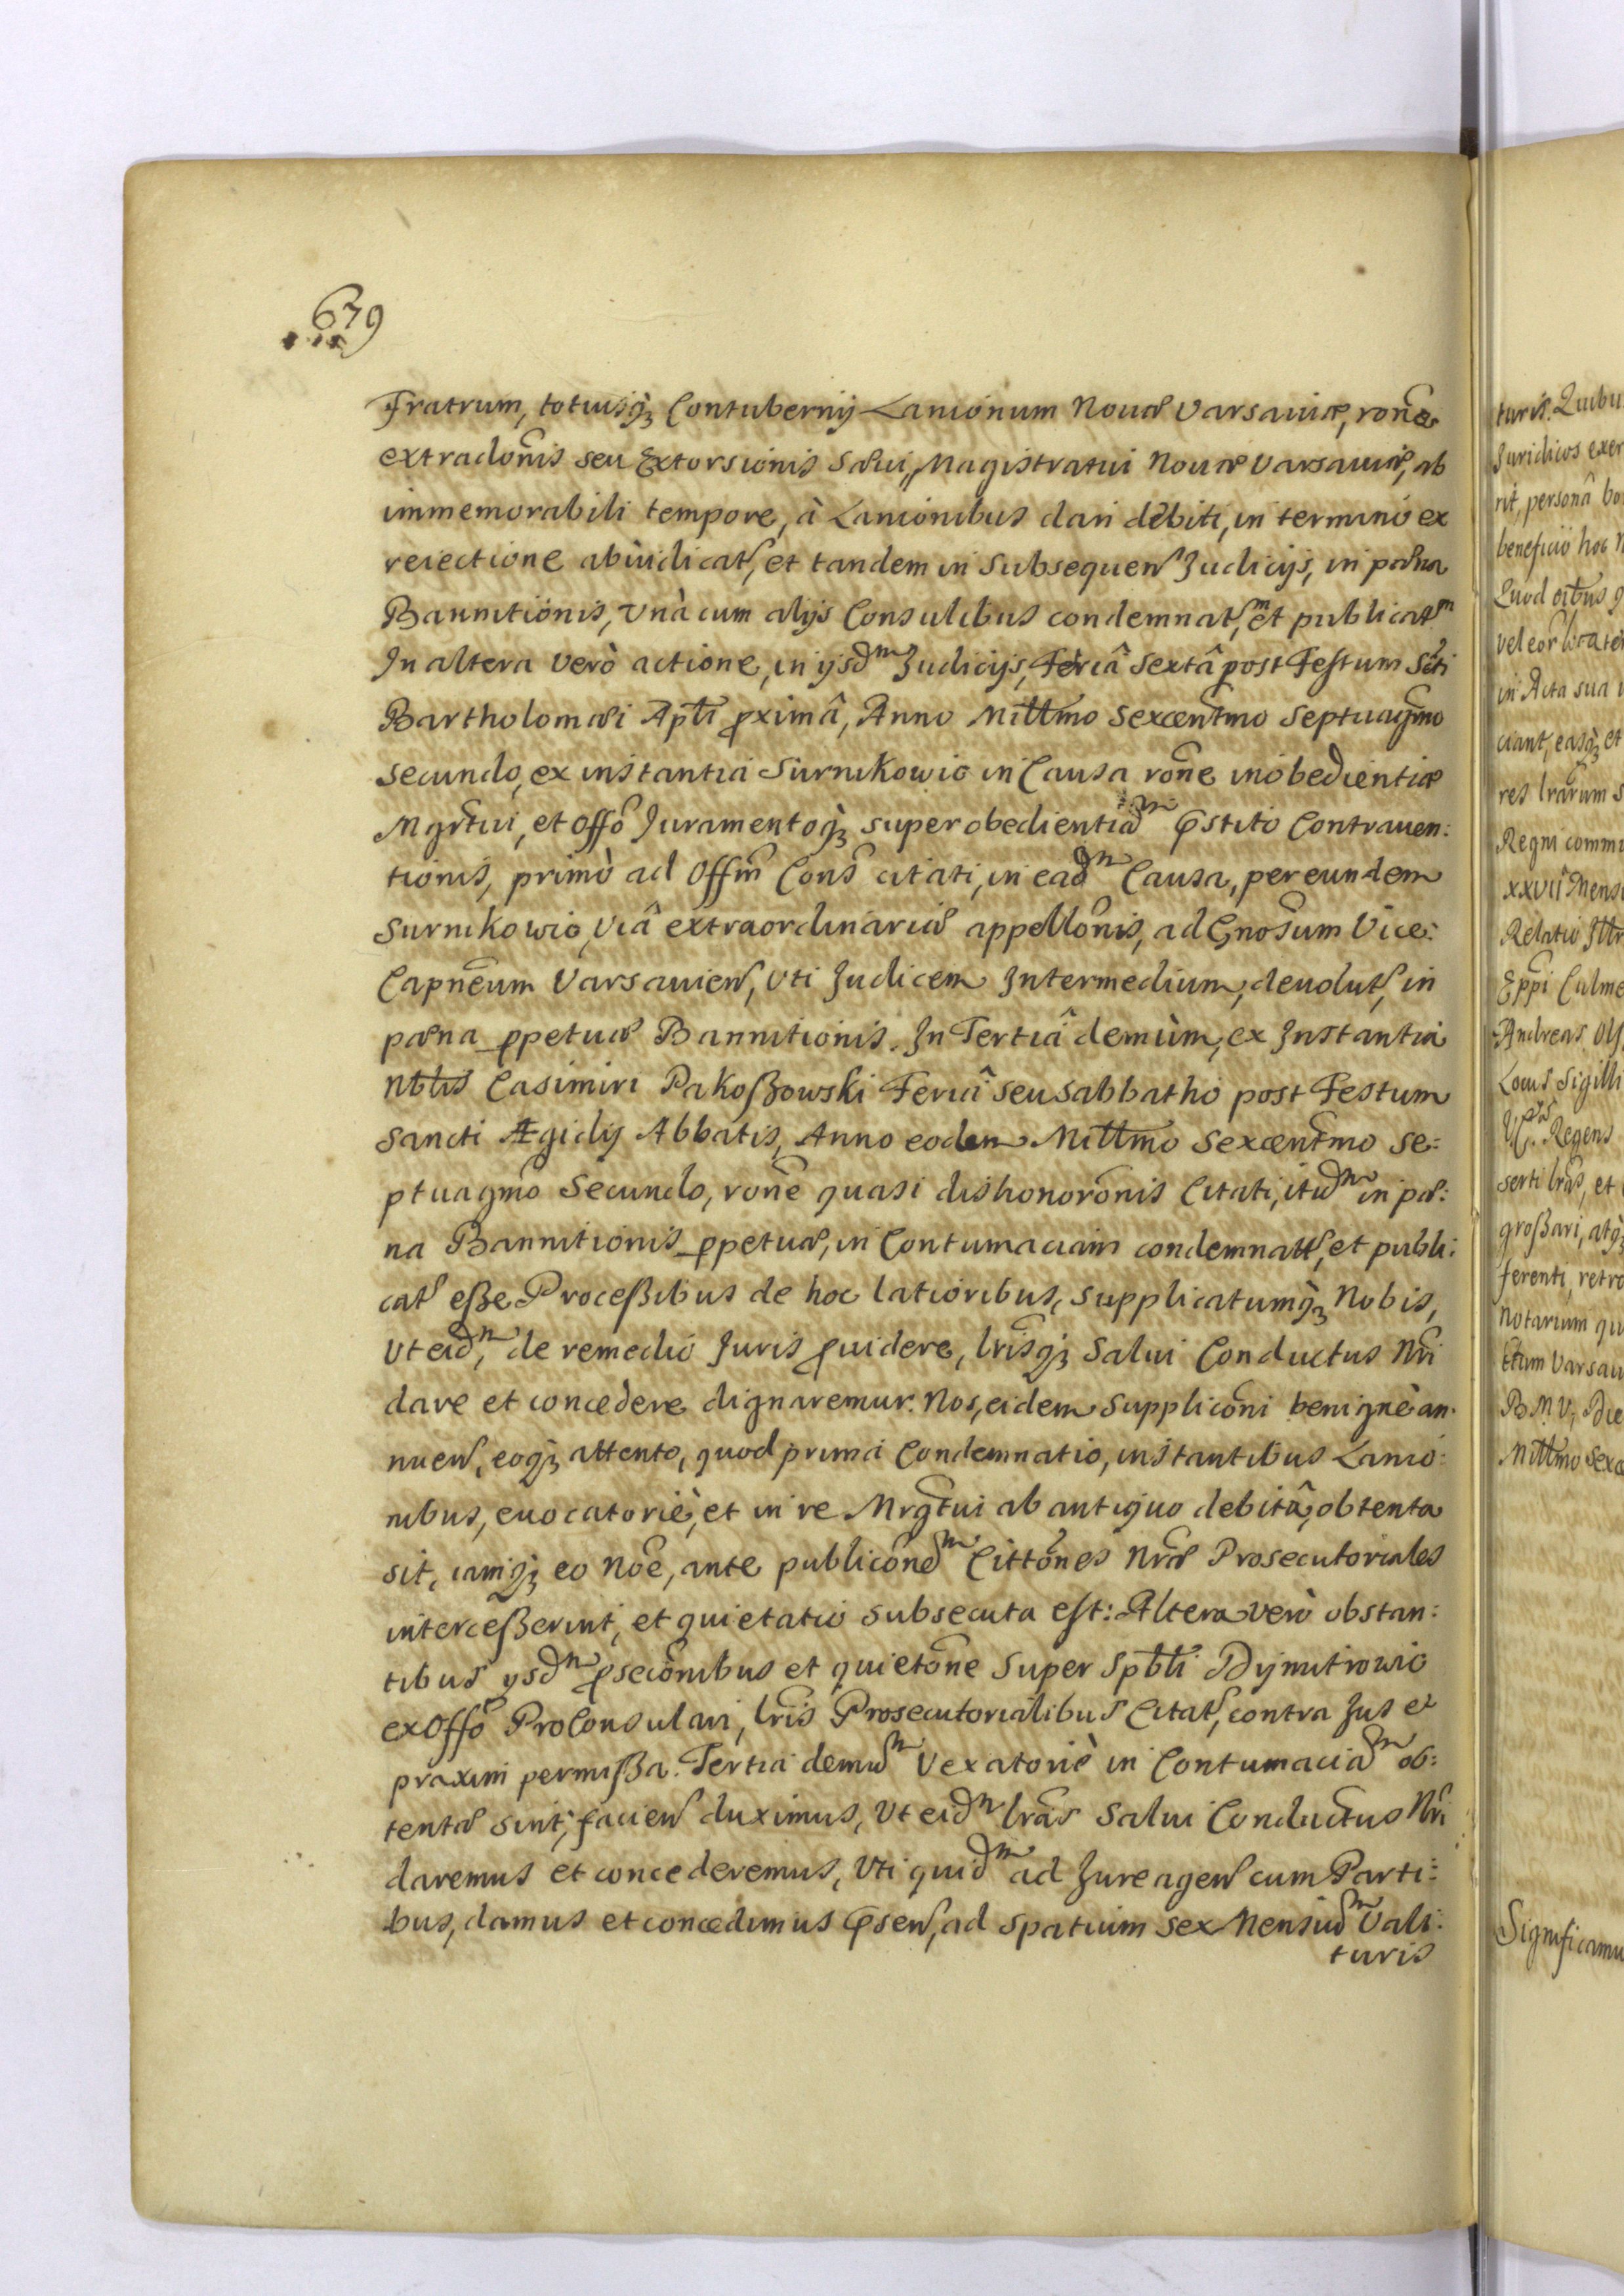 679
Fratrum, totiusq̃ Contubernij Lanionum Novæ Varsaviæ, rõne
extradõnis seu Extorsionis Sævi, Magistratui Novæ Varsaviæ, ab
immemorabili tempore, à Lanionibus dari debiti, in termino ex
reiectione abiudicat, et tandem in Subsequen Judicijs, in pæna
Bannitionis, Unà cum alijs Consulibus condemnat, et publicat
In altera verò actione, in ijsdm Judicijs, Feriâ Sextâ post Festum Scti
Bartholomæi Apłi proximâ, Anno Millmo Sexcentmo Septuagmo
Secundo, ex instantia Surnikowic in Causa rõne inobedientiæ
Mgrtui, et Offõ Juramentoq̃ super obedientiam præstito Contraven:
tionis, primò ad Offm Cons citati, in eadm Causa, per eundem
Surnikowic, Viâ extraordinariæ appellõnis, ad Gnosum Vice:
Capneum Varsavien, Uti Judicem Intermedium, devolut, in
pæna perpetuæ Bannitionis. In Tertiâ demùm, ex Instantia
Nblis Casimiri Pakoßowski Feriâ seu Sabbatho post Festum
Sancti Ægidij Abbatis, Anno eodem Millmo Sexcentmo Se:
ptuagmo Secundo, rõne quasi dishonorõnis Citati, itidm in pæ:
na Bannitionis perpetuæ, in Contumaciam condemnatt, et publi:
cat eße Proceßibus de hoc latioribus, Supplicatumq̃ Nobis,
Ut eidm, de remedio Juris providere, lrisq̃ Salvi Conductus Nri
dare et concedere dignaremur. Nos, eidem Supplicõni benignè an:
nuen, eoq̃ attento, quod prima Condemnatio, instantibus Lanio:
nibus, evocatoriè, et in re Mrgtui ab antiquo debitâ, obtenta
sit, iamq̃ eo Nõe, ante publicõnem Cittõnes Nræ Prosecutoriales
interceßerint, et quietatio subsecuta est: Altera verò obstan:
tibus ijsdm prosecõnibus et quietõne Super Spbli Dijmitrowic
ex Offõ ProConsulari, lris Prosecutorialibus Citat, contra Jus et
praxim permißa. Tertia demum Vexatoriè in Contumaciam ob:
tentæ sint, facien duximus, Ut eidm lras Salvi Conductus Nri
daremus et concederemus, Uti quidm ad Jure agen cum Parti:
bus, damus et concedimus præsen, ad spatium sex Mensium Vali:
turis
turis. Quibu
Juridicos exer
rit, personâ bo
beneficio hoc
Quod oĩbus
in Acta sua
ciant, easq̃ et
res lrarum S
Regni comm
xxvii Mens
Relatio Illr
Eppi Culme
Andreas Ols
Locus Sigilli
Regens
serti lras, et
großari, atq̃
ferenti, retro
Notarium qu
Varsav
B.M.V, Die
Millmo Sexc
Significamu